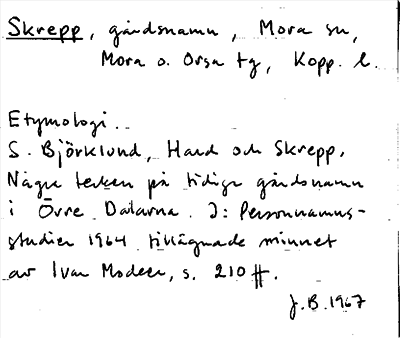 Skrepp, gårdsnamn, Mora sn,
Mora o. Orsa tg, Kopp. l.
Etymologi.
S. Björklund, Hard och Skrepp.
Några tecken på tidiga gårdsnamn
i Övre Dalarna. I: Personnamns-
studier 1964 tillägnade minnet
av Ivar Modéer, s. 210 ff.
J.B. 1967